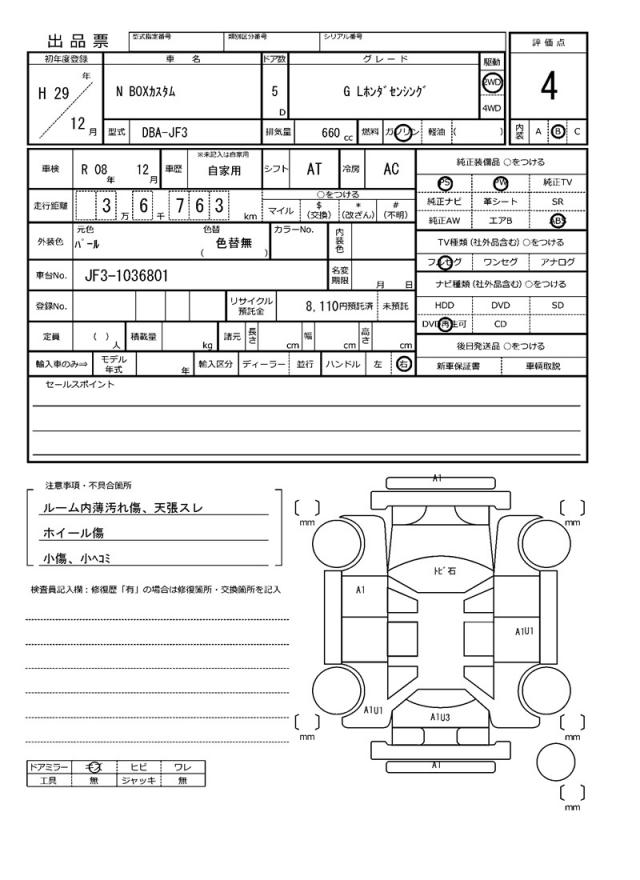 出品票 型式指定番号 類別区分番号 シリアル番号 評価点
初年度登録 車名 ドア数 グレード 駆動
H 29 年 N BOXカスタム 5 D G Lホンダセンシング 2WD 4
4WD
12 月 型式 DBA-JF3 排気量 660 cc 燃料 ガソリン 軽油 ( ) 内装 A B C
車検 R 08 年 12 月 車歴 ※未記入は自家用 自家用 シフト AT 冷房 AC 純正装備品 ○をつける
PS PW 純正TV
走行距離 3 万 6 千 7 6 3 km ○をつける 純正ナビ 革シート SR
マイル $ (交換) * (改ざん) # (不明) 純正AW エアB ABS
外装色 元色 パール 色替 色替無 ( ) カラーNo. 内装色 TV種類(社外品含む) ○をつける
フルセグ ワンセグ アナログ
車台No. JF3-1036801 名変期限 月 日 ナビ種類(社外品含む) ○をつける
登録No. リサイクル預託金 8,110円預託済 未預託 HDD DVD SD
DVD再生可 CD
定員 ( ) 人 積載量 kg 諸元 長さ cm 幅 cm 高さ cm 後日発送品 ○をつける
輸入車のみ⇒ モデル年式 年 輸入区分 ディーラー 並行 ハンドル 左 右 新車保証書 車輌取説
セールスポイント
注意事項・不具合箇所
ルーム内薄汚れ傷、天張スレ
ホイール傷
小傷、小ヘコミ
検査員記入欄:修復歴「有」の場合は修復箇所・交換箇所を記入
A1
[ ] mm [ ] mm
トビ石
A1
A1U1
A1U1
A1U3
[ ] mm [ ] mm
A1
[ ] mm
ドアミラー キズ ヒビ ワレ
工具 無 ジャッキ 無